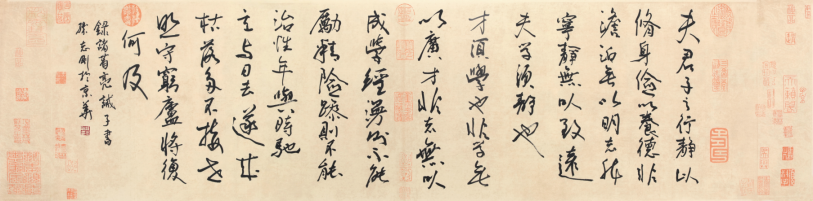 夫君子之行靜以
脩身儉以養德非
澹泊無以明志非
寧靜無以致遠
夫學須靜也
才須學也非學無
以廣才非志無以
成學淫漫則不能
勵精險躁則不能
治性年與時馳
意與日去遂成
枯落多不接世
悲守窮廬將復
何及
錄諸葛亮誡子書
於京華